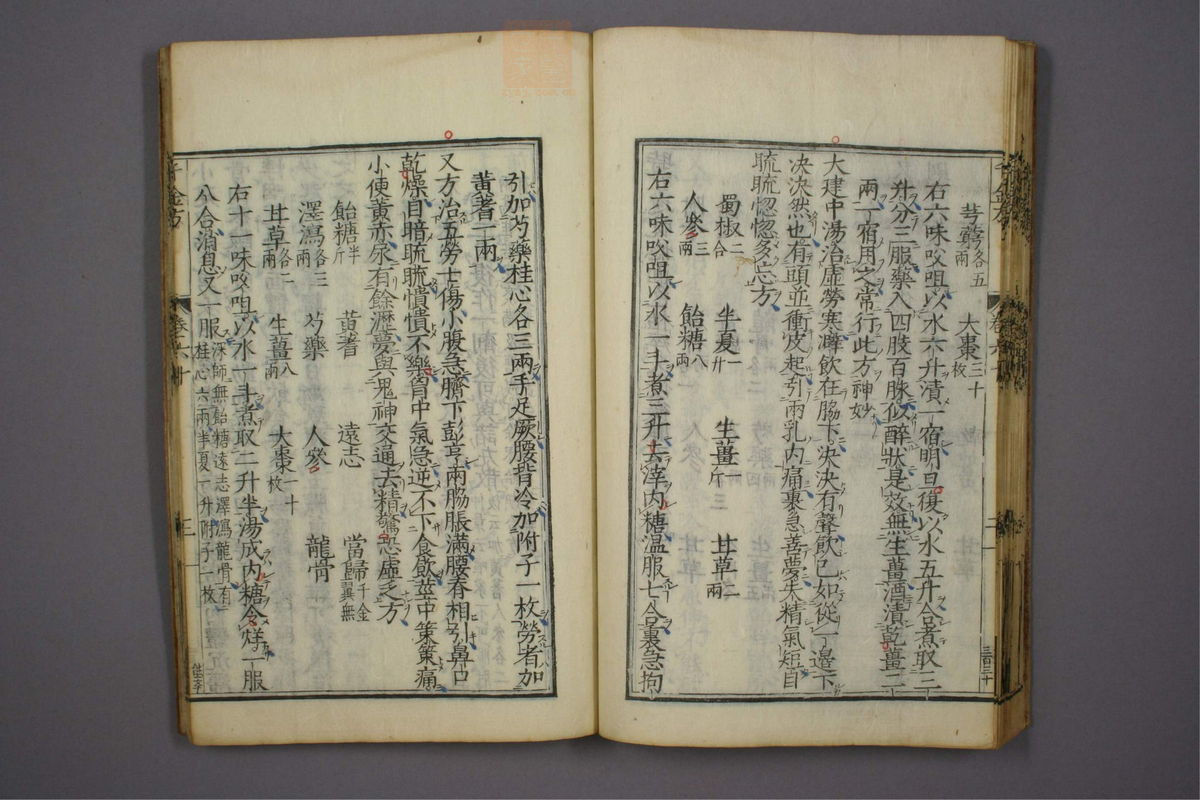 芎藭各五兩　大棗三十枚
右六味㕮咀以水六升漬一宿明旦復以水五升合煮取三
升分三服藥入四股百脉似醉狀是效無生薑酒漬乾薑二
兩一宿用之常行此方神妙
大建中湯治虛勞寒澼飲在脇下決決有聲飲已如從一邊下
決決然也有頭並衝皮起引兩乳内痛裏急善夢失精氣短目
䀮䀮惚惚多忘方
蜀椒二合　半夏一升　生薑一斤　甘草二兩
人參三兩　飴糖八兩
右六味㕮咀以水一斗煮三升去滓内糖温服七合裏急拘
引加芍藥桂心各三兩手足厥腰背冷加附子一枚勞者加
黄耆一兩
又方治五勞七傷小腹急臍下彭亨兩脇脹滿腰脊相引鼻口
乾燥目暗䀮䀮憒憒不樂胷中氣急逆不下食飲莖中策策痛
小便黄赤尿有餘瀝夢與鬼神交通去精驚恐虛乏方
飴糖半斤　黄耆　遠志　當歸千金翼無
澤瀉各三兩　芍藥　人參　龍骨
甘草各二兩　生薑八兩　大棗二十枚
右十一味㕮咀以水一斗煮取二升半湯成内糖令烊一服
八合消息又一服深師無飴糖遠志澤瀉龍骨有桂心六兩半夏一升附子一枚
千金方
三